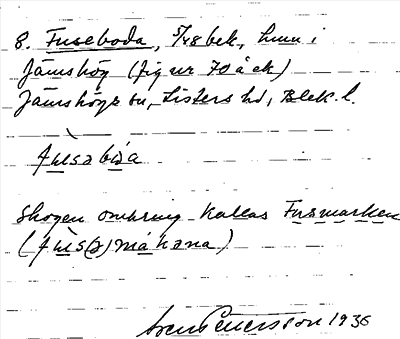 8. Fuseboda, 5/48 bek, hmn i
Jämshög (fig ur 70 å ek)
Jämshögs sn, Listers hd, Blek. l.
fùsabóa
Skogen omkring kallas Fusmarken
(fùs(ə)mákəna)
Sven Petersson 1936